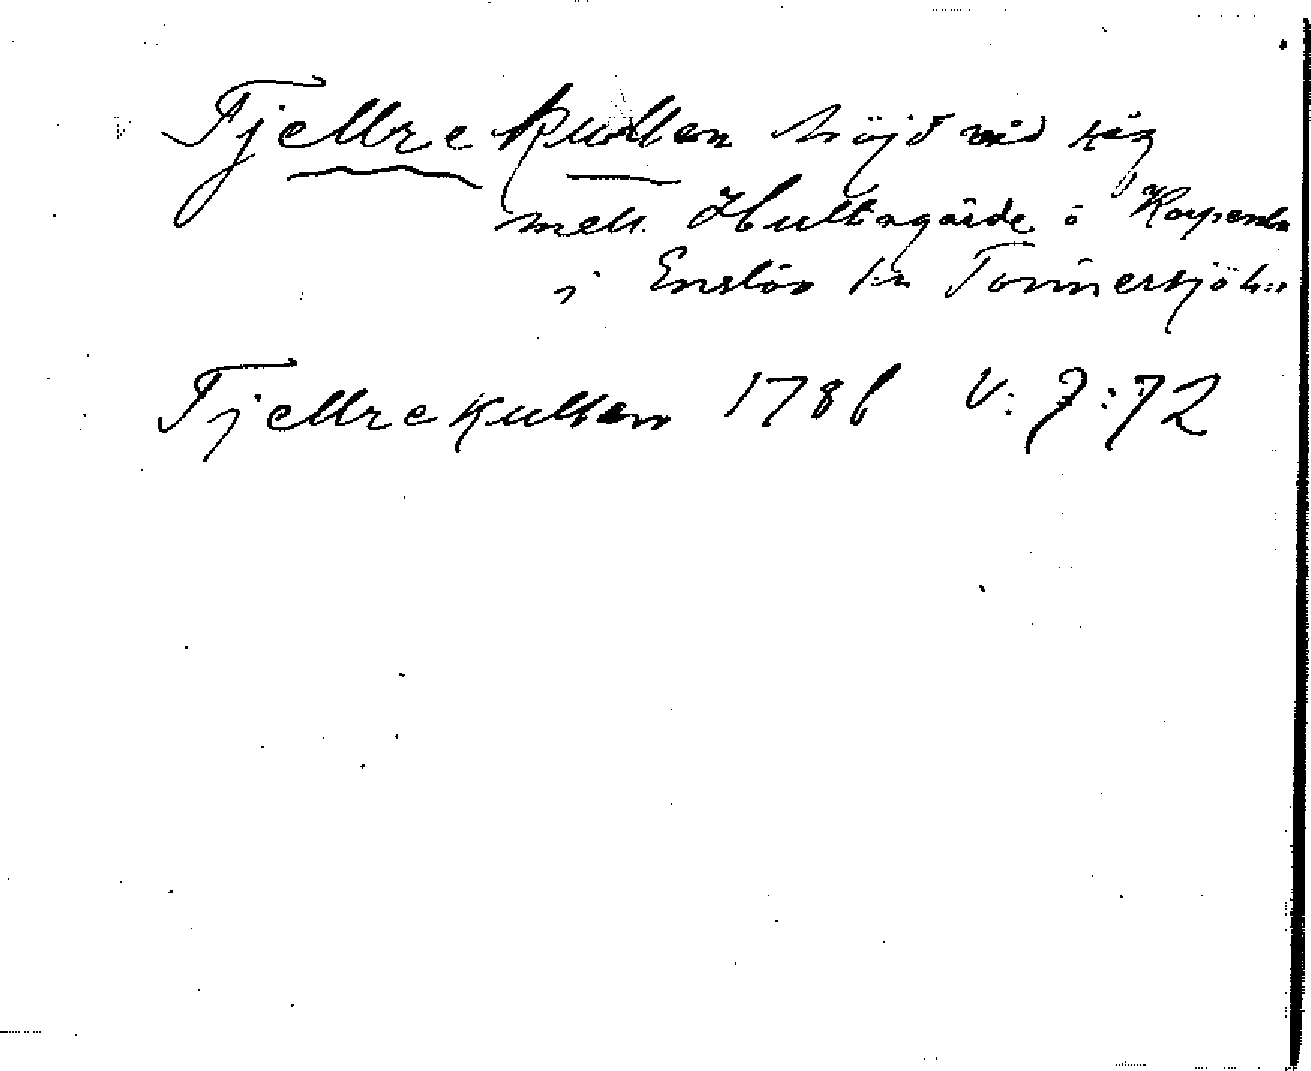 Fjellrekullen höjd vid väg
mell. Hultagärde o
i Enslöv hn Tönnersjö hd
Fjellrekullen 1786 V: 7:72